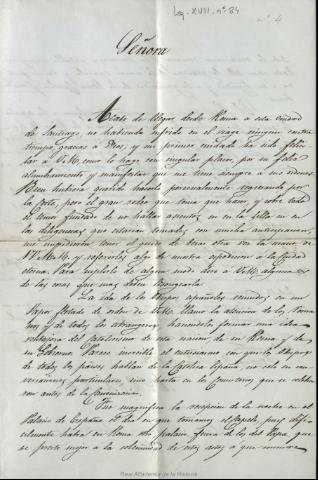 Leg. XVII, nº 84
nº 4
Señora
Acabo de llegar desde Roma a esta ciudad
de Santiago no habiendo sufrido en el viage ningun contra
tiempo, gracias á Dios, y mi primer cuidado ha sido felici
tar á V.M. como lo hago con singular placer, por su feliz
alumbramiento y manifestar que me tiene siempre a sus ordenes.
Bien hubiera querido hacerlo personalmente regresando por
la Corte, pero el gran rodeo que tenia que hacer, y sobre todo
el temor fundado de no hallar asientos ni en la silla ni en
las diligencias que estarian tomados con mucha anticipacion,
me impidieron tener el gusto de besar otra vez la mano de
VV.MM. y referirles algo de nuestra expedicion a la Ciudad
eterna. Para suplirlo de algun modo diré a V.M. algunas
de las cosas que mas deben
La ida de los Obispos españoles reunidos en un
Vapor fletado de orden de V.M. llamó la atencion de los Roma
nos y de todos los estrangeros haciendoles formar una idea
ventajosa del Catolicismo de esta nacion de su Reyna y de
su Gobierno. Parece increible el entusiasmo con que los Obispos
de todos los paises hablan de la Catolica España, no solo en con
versaciones particulares, sino hasta en los Consistorios que se celebra
ron antes de la Canonizacion.
Fue magnifica la recepcion de la noche en el
Palacio de España el dia en que tomamos el Capelo, pues difi
cilmente habrá en Roma otro palacio fuera de los del Papa, que
se preste mejor a la solemnidad de estos actos a que concurre
Real Academia de la Historia